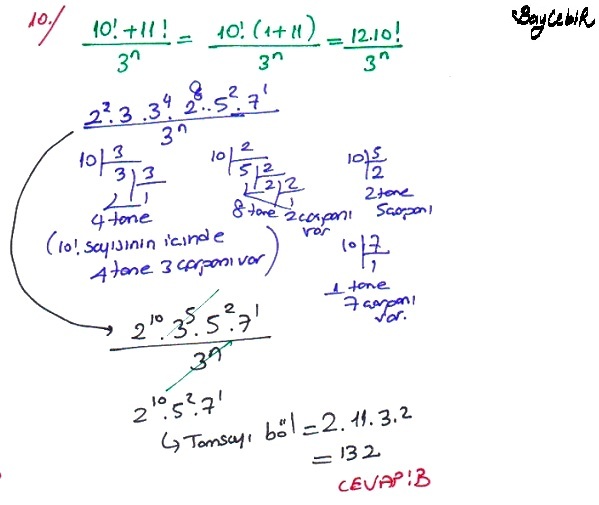 10./
BayCebiR
10!+11! / 3^n = 10!(1+11) / 3^n = 12.10! / 3^n
2^2.3.3^4.2^8.5^2.7^1 / 3^n
10 | 3
3 | 3
1
4 tane
10 | 2
5 | 2
2 | 2
1
8 tane 2 çarpanı
var
10 | 5
2
2 tane
5 çarpanı
(10! sayısının içinde
4 tane 3 çarpanı var)
10 | 7
1
1 tane
7 çarpanı
var.
2^10.3^5.5^2.7^1 / 3^n
2^10.5^2.7^1
↳ Tamsayı böl = 2.11.3.2
= 132
CEVAP:B